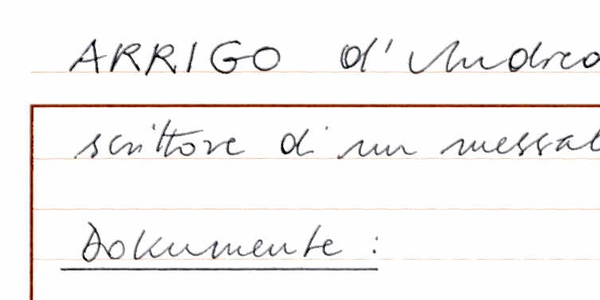 ARRIGO d'Andrea
scrittore di un messal
Dokumente :